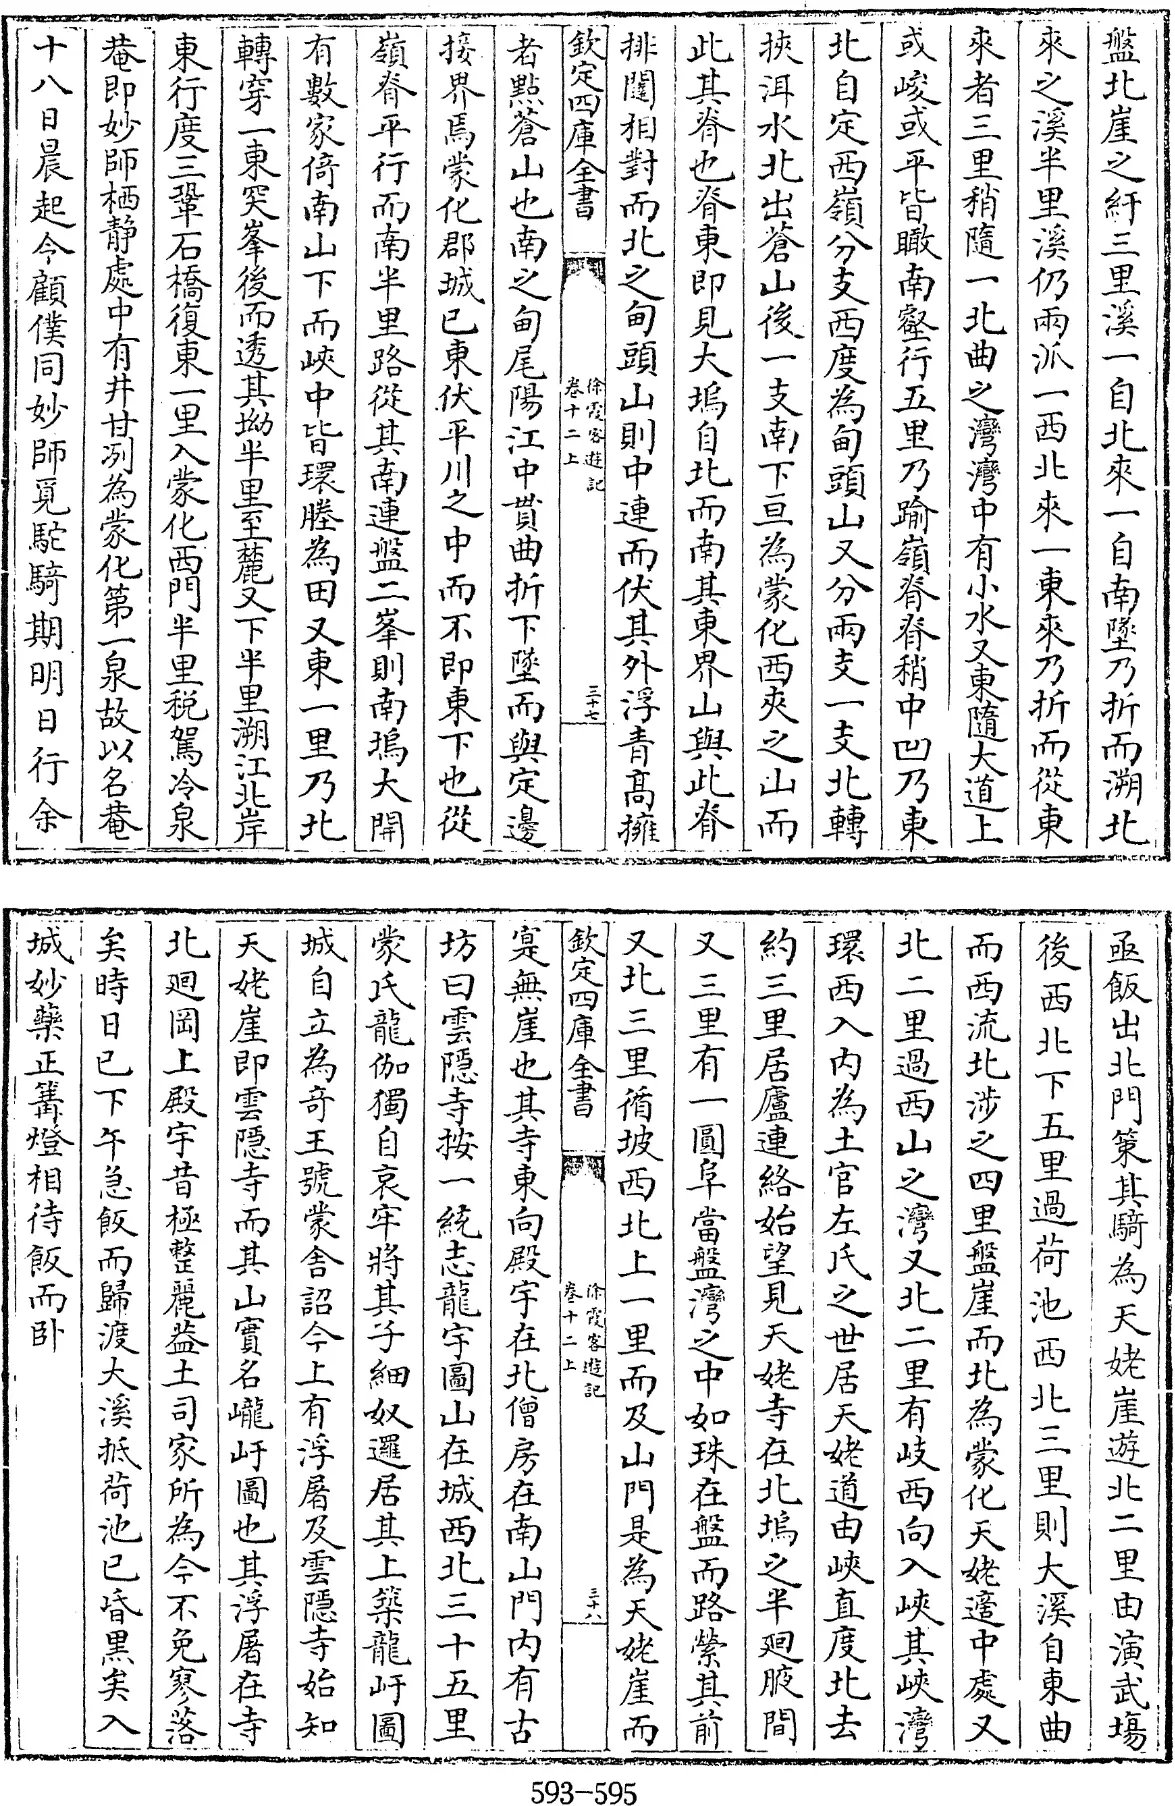 盤北崖之紆三里溪一自北來一自南墜乃折而溯北
來之溪半里溪仍兩派一西北來一東來乃折而從東
來者三里稍隨一北曲之灣灣中有小水又東隨大道上
或峻或平皆瞰南壑行五里乃踰嶺脊脊稍中凹乃東
北自定西嶺分支西度為甸頭山又分兩支一支北轉
挾洱水北出蒼山後一支南下亘為蒙化西夾之山而
此其脊也脊東即見大塢自北而南其東界山與此脊
排闥相對而北之甸頭山則中連而伏其外浮青高擁
欽定四庫全書
徐霞客遊記
卷十二上
三十七
者點蒼山也南之甸尾陽江中貫曲折下墜而與定邊
接界焉蒙化郡城已東伏平川之中而不即東下也從
嶺脊平行而南半里路從其南連盤二峯則南塢大開
有數家倚南山下而峽中皆環塍為田又東一里乃北
轉穿一東突峯後而透其坳半里至麓又下半里溯江北岸
東行度三鞏石橋復東一里入蒙化西門半里稅駕冷泉
菴即妙師栖静處中有井甘冽為蒙化第一泉故以名菴
十八日晨起令顧僕同妙師覓駝騎期明日行余
亟飯出北門策其騎為天姥崖遊北二里由演武塲
後西北下五里過荷池西北三里則大溪自東曲
而西流北涉之四里盤崖而北為蒙化天姥適中處又
北二里過西山之灣又北二里有岐西向入峽其峽灣
環西入内為土官左氏之世居天姥道由峽直度北去
約三里居廬連絡始望見天姥寺在北塢之半廻腋間
又三里有一圓阜當盤灣之中如珠在盤而路縈其前
又北三里循坡西北上一里而及山門是為天姥崖而
欽定四庫全書
徐霞客遊記
卷十二上
三十八
寔無崖也其寺東向殿宇在北僧房在南山門内有古
坊曰雲隱寺按一統志龍宇圖山在城西北三十五里
蒙氏龍伽獨自哀牢將其子細奴邏居其上築龍屽圖
城自立為奇王號蒙舍詔今上有浮屠及雲隱寺始知
天姥崖即雲隱寺而其山實名巃屽圖也其浮屠在寺
北廻岡上殿宇昔極整麗葢土司家所為今不免寥落
矣時日已下午急飯而歸渡大溪抵荷池已昏黑矣入
城妙藥正篝燈相待飯而卧
593—595